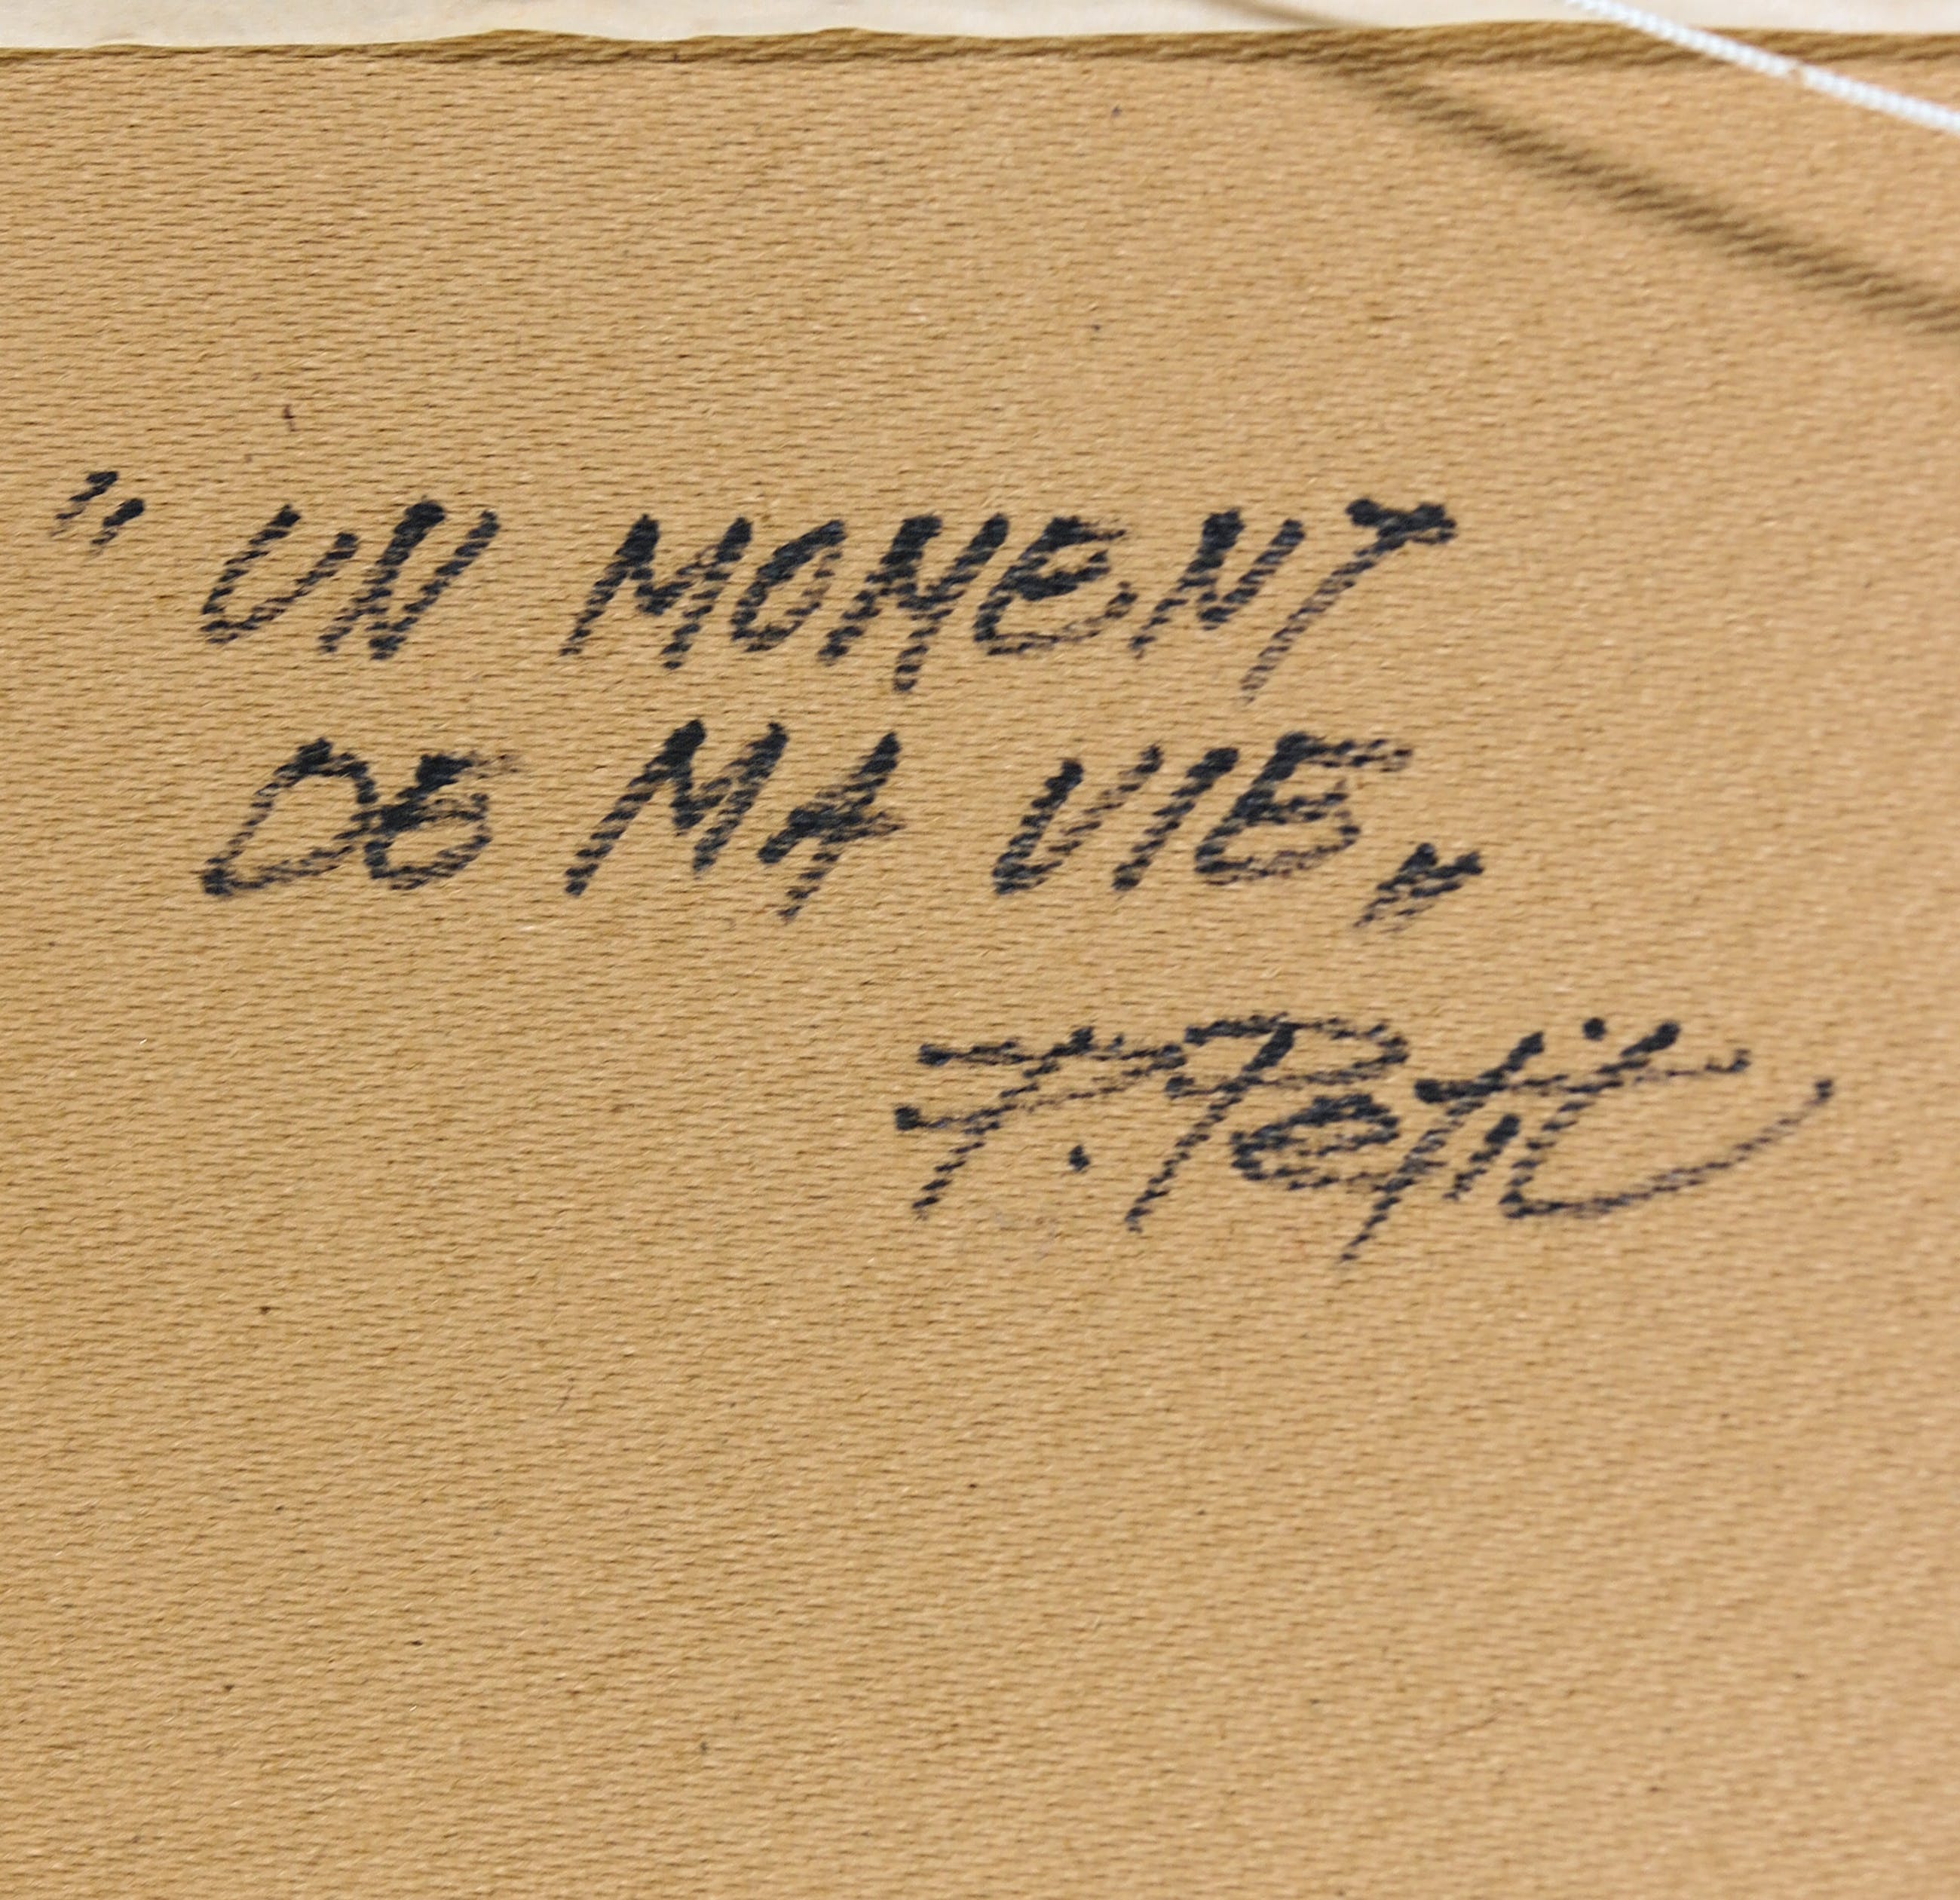 "UN MOMENT
DE MA VIE"
F. Petit